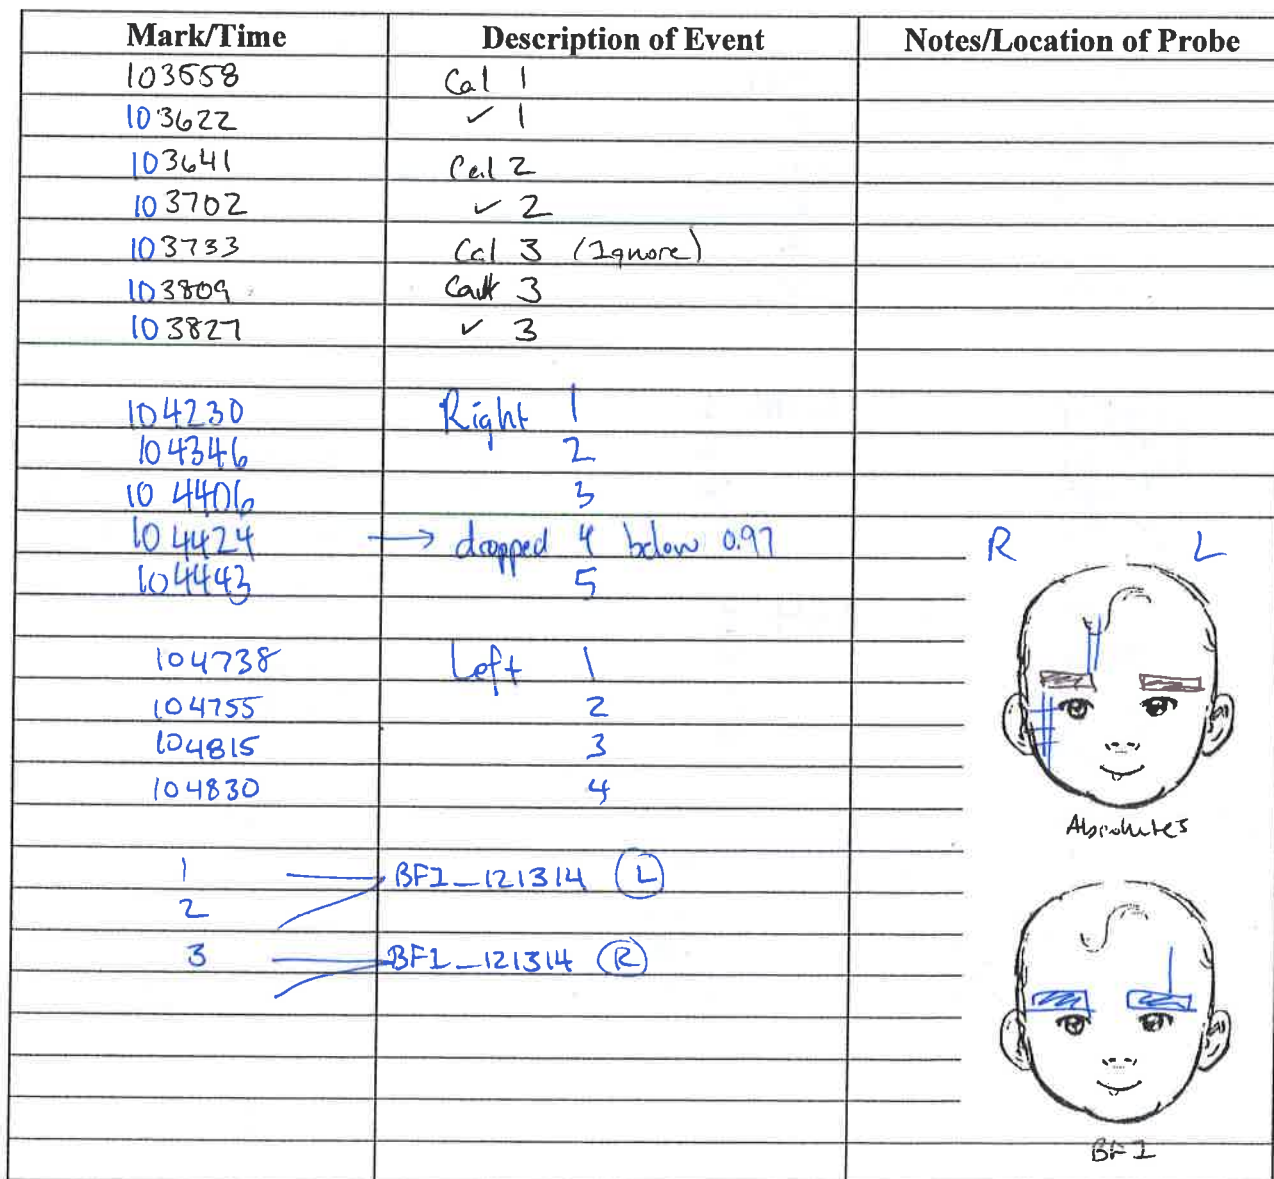 Mark/Time Description of Event Notes/Location of Probe
103558 Cal 1
103622 ✓ 1
103641 Cal 2
103702 ✓ 2
103733 Cal 3 (Ignore)
103809 3
103827 ✓ 3
104230 Right 1
104346 2
104406 3
104424 → dropped 4 below 0.97
R L
104443 5
104738 Left 1
104755 2
104815 3
104830 4
Absolutes
1 BFI_121314 (L)
2
3 BFI_121314 (R)
BFI